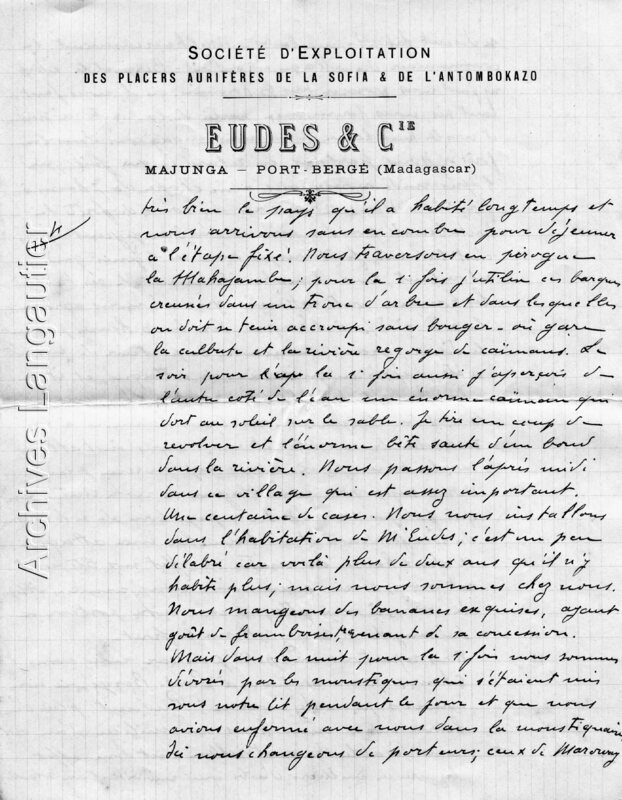 SOCIÉTÉ D'EXPLOITATION
DES PLACERS AURIFÈRES DE LA SOFIA & DE L'ANTOMBOKAZO
EUDES & CIE
MAJUNGA — PORT-BERGÉ (Madagascar)
très bien le pays qu'il a habité longtemps et
nous arrivons sans encombre pour déjeuner
à l'étape fixé. Nous traversons en pirogue
la Mahajamba; pour la 1e fois j'utilise ces barques
creusées dans un tronc d'arbre et dans lesquelles
on doit se tenir accroupi sans bouger - où gare
la culbute et la rivière regorge de caïmans. Le
soir pour la 1e fois aussi j'aperçois de
l'autre coté de l'eau un énorme caïman qui
dort au soleil sur le sable. Je tire un coup de
revolver et l'énorme bête saute d'un bond
dans la rivière. Nous passons l'après midi
dans ce village qui est assez important.
Une centaine de cases. Nous nous installons
dans l'habitation de Mr Eudes; c'est un peu
délabré car voilà plus de deux ans qu'il n'y
habite plus; mais nous sommes chez nous.
Nous mangeons des bananes exquises, ayant
goût de framboises, venant de sa concession.
Mais dans la nuit pour la 1e fois nous sommes
dévorés par les moustiques qui s'étaient mis
sous notre lit pendant le jour et que nous
avions enfermé avec nous dans la moustiquaire
Ici nous changeons de porteurs; ceux de Marovoay
Archives Langautier